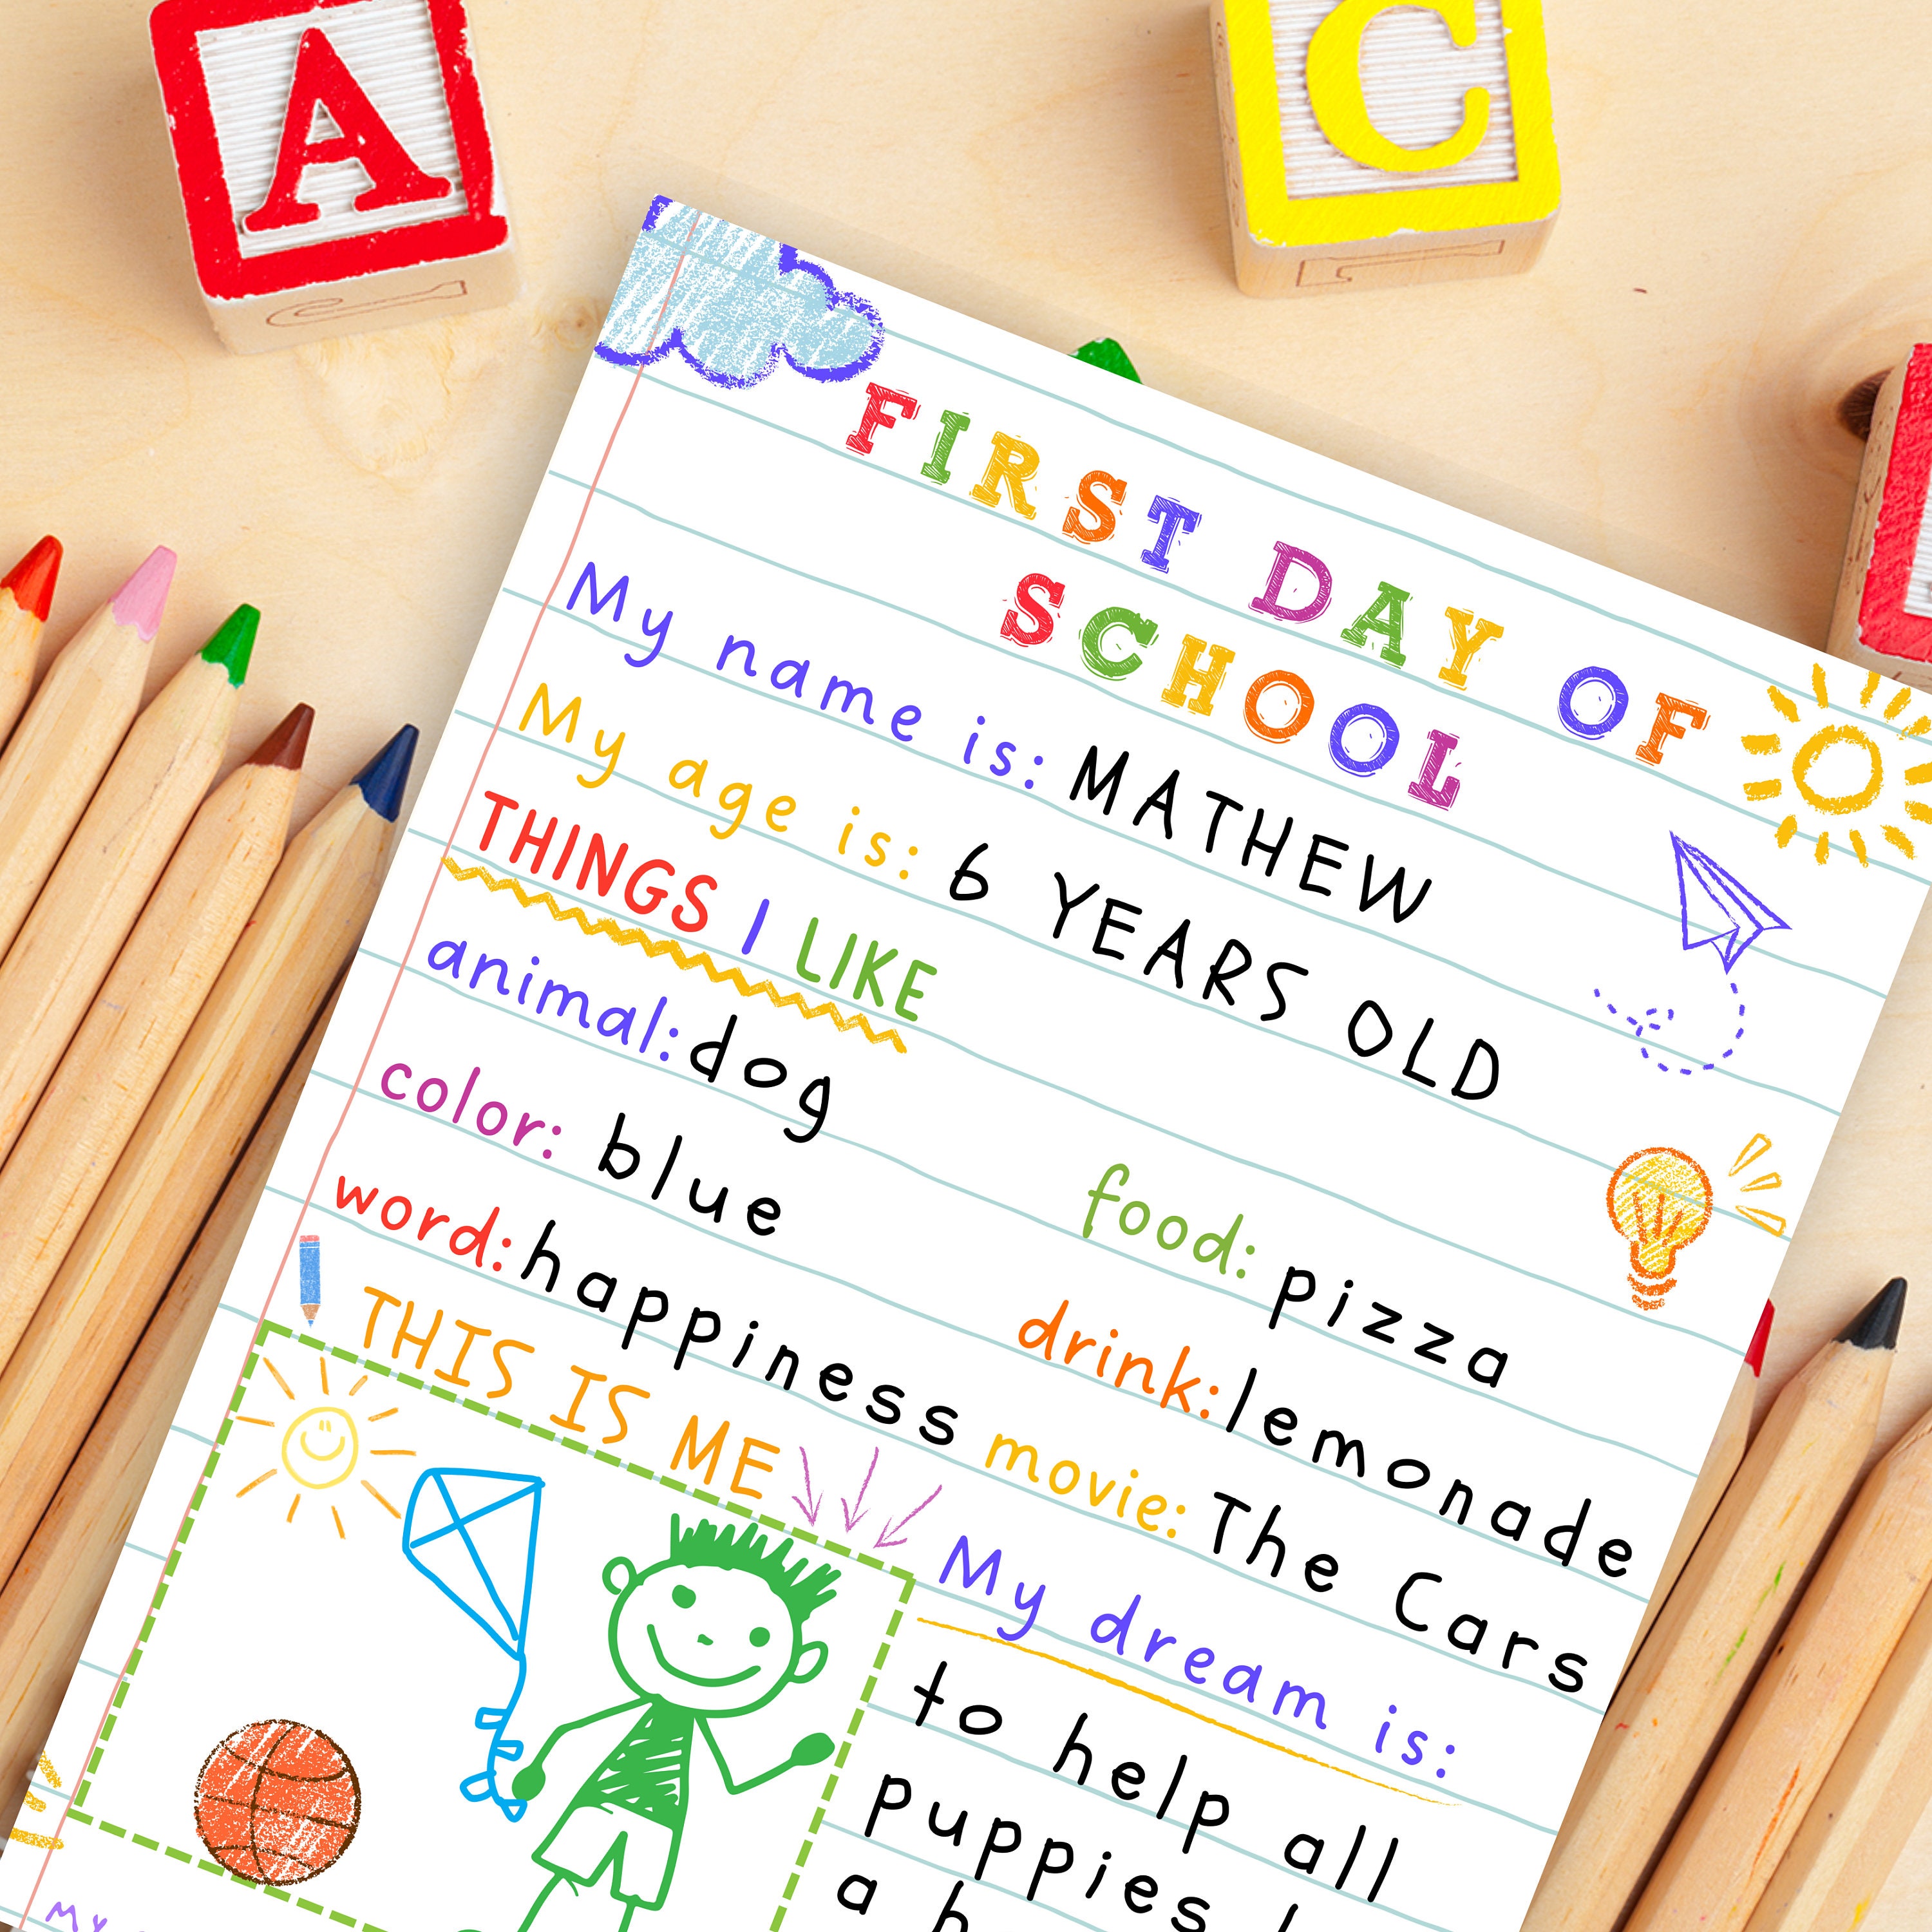 A
C
FIRST DAY OF
SCHOOL
My name is: MATHEW
My age is: 6 YEARS OLD
THINGS I LIKE
animal: dog
food: pizza
color: blue
drink: lemonade
word: happiness
movie: The Cars
THIS IS ME
My dream is:
to help all
puppies
a
My